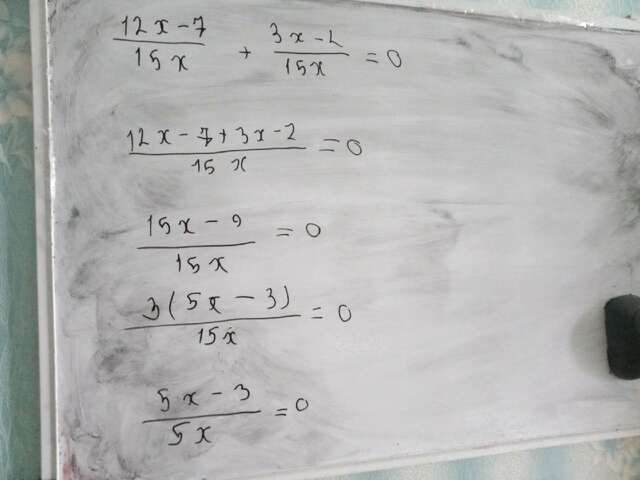 (12x-7)/(15x) + (3x-2)/(15x) = 0
(12x-7+3x-2)/(15x) = 0
(15x-9)/(15x) = 0
3(5x-3)/(15x) = 0
(5x-3)/(5x) = 0